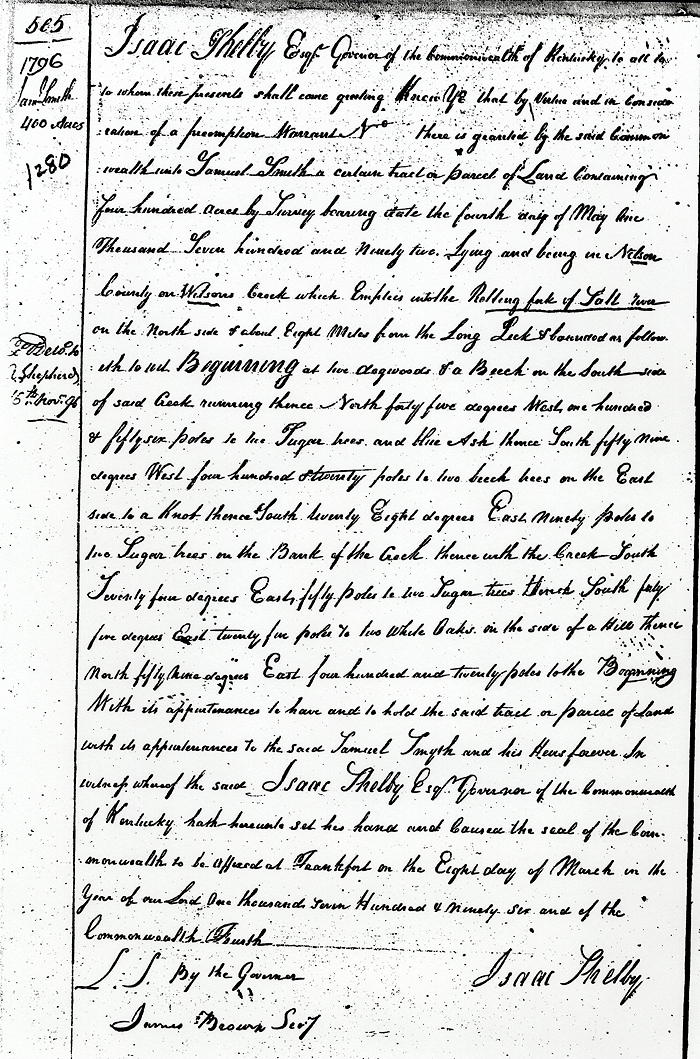 505
1796
Sam Smith
400 Acres
1280
Isaac Shelby Esqr. Governor of the Commonwealth of Kentucky to all to
to whom these presents shall come greeting Know Ye that by Virtue and in Conside
ration of a preemption Warrant No there is granted by the said Common
wealth unto Samuel Smith a certain tract or parcel of Land Containing
four hundred acres by Survey bearing date the fourth day of May One
Thousand Seven hundred and Ninety two. Lying and being in Nelson
County on Wilsons Creek which Empties into the Rolling fork of Salt river
on the North side & about Eight Miles from the Long Lick & bounded as follow
eth to wit Beginning at two dogwoods & a Beech on the South side
of said Creek running thence North forty five degrees West, one hundred
& fifty six poles to two Sugar trees and blue Ash thence South fifty Nine
degrees West four hundred & twenty poles to two beech trees on the East
side to a Knob thence South twenty Eight degrees East Ninety poles to
two Sugar trees on the Bank of the Creek thence with the Creek South
Twenty four degrees East, fifty poles to two Sugar trees thence South forty
five degrees East twenty five poles to two White Oaks on the side of a Hill thence
North fifty Nine degrees East four hundred and twenty poles to the Beginning
With its appurtenances to have and to hold the said tract or parcel of land
with its appurtenances to the said Samuel Smyth and his Heirs forever In
witness whereof the said Isaac Shelby Esqr. Governor of the Commonwealth
of Kentucky hath hereunto set his hand and Caused the seal of the Com-
monwealth to be affixed at Frankfort on the Eight day of March in the
Year of our Lord One thousand Seven Hundred & Ninety Six and of the
Commonwealth Fourth
L. S. By the Governor
Isaac Shelby
James Brown Secy
Deld. to
Shepherd
5th Nov. 96